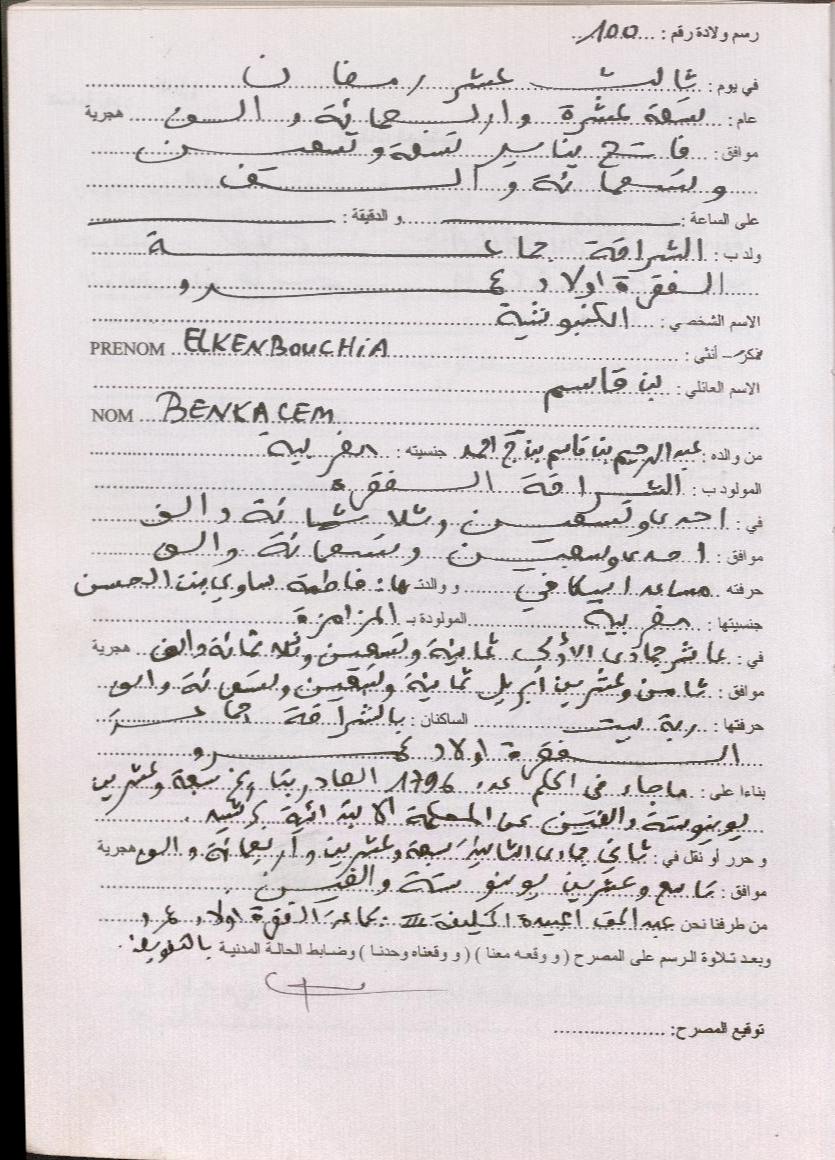 رسم ولادة رقم : 100
في يوم : ثالث عشر رمضان
عام : تسعة عشرة واربعمائة والف هجرية
موافق : فاتح يناير تسعة وتسعين
وتسعمائة والف
على الساعة : و الدقيقة :
ولد ب : الشراقة جماعة
الفقرة اولاد عمرو
الاسم الشخصي : الكنبوشية
ذكر – أنثى : ELKENBOUCHIA PRENOM
الاسم العائلي : بن قاسم
NOM BENKACEM
من والده : عبد الرحيم بن قاسم بن ج احمد جنسيته : مغربية
المولود ب : الشراقة الفقرة
في : احدى وتسعين وثلاثمائة والف
موافق : احدى وسبعين وتسعمائة والف
حرفته مساعد ميكانيكي و والدتها : فاطمة ساوي بنت الحسن
جنسيتها : مغربية المولودة بـ المزامزة
في : عاشر جمادى الأولى ثمانية وتسعين وثلاثمائة والف هجرية
موافق : ثامن وعشرين أبريل ثمانية وسبعين وتسعمائة والف
حرفتها : ربة بيت الساكنان : بالشراقة جماعة
الفقرة اولاد عمرو
بناءا على : ماجاء في الحكم عدد 1796 الصادر بتاريخ سبعة وعشرين
يونيو ستة والفين عن المحكمة الابتدائية
و حرر أو نقل في : ثاني جمادى الثانية سبعة وعشرين واربعمائة والف هجرية
موافق : وعشرين يونيو ستة والفين
من طرفنا نحن عبد الحق الخليفة III جماعة الفقرة اولاد عمرو
وبعد تلاوة الرسم على المصرح ( و وقعه معنا ) ( و وقعناه وحدنا ) وضابط الحالة المدنية بالتفويض
توقيع المصرح: